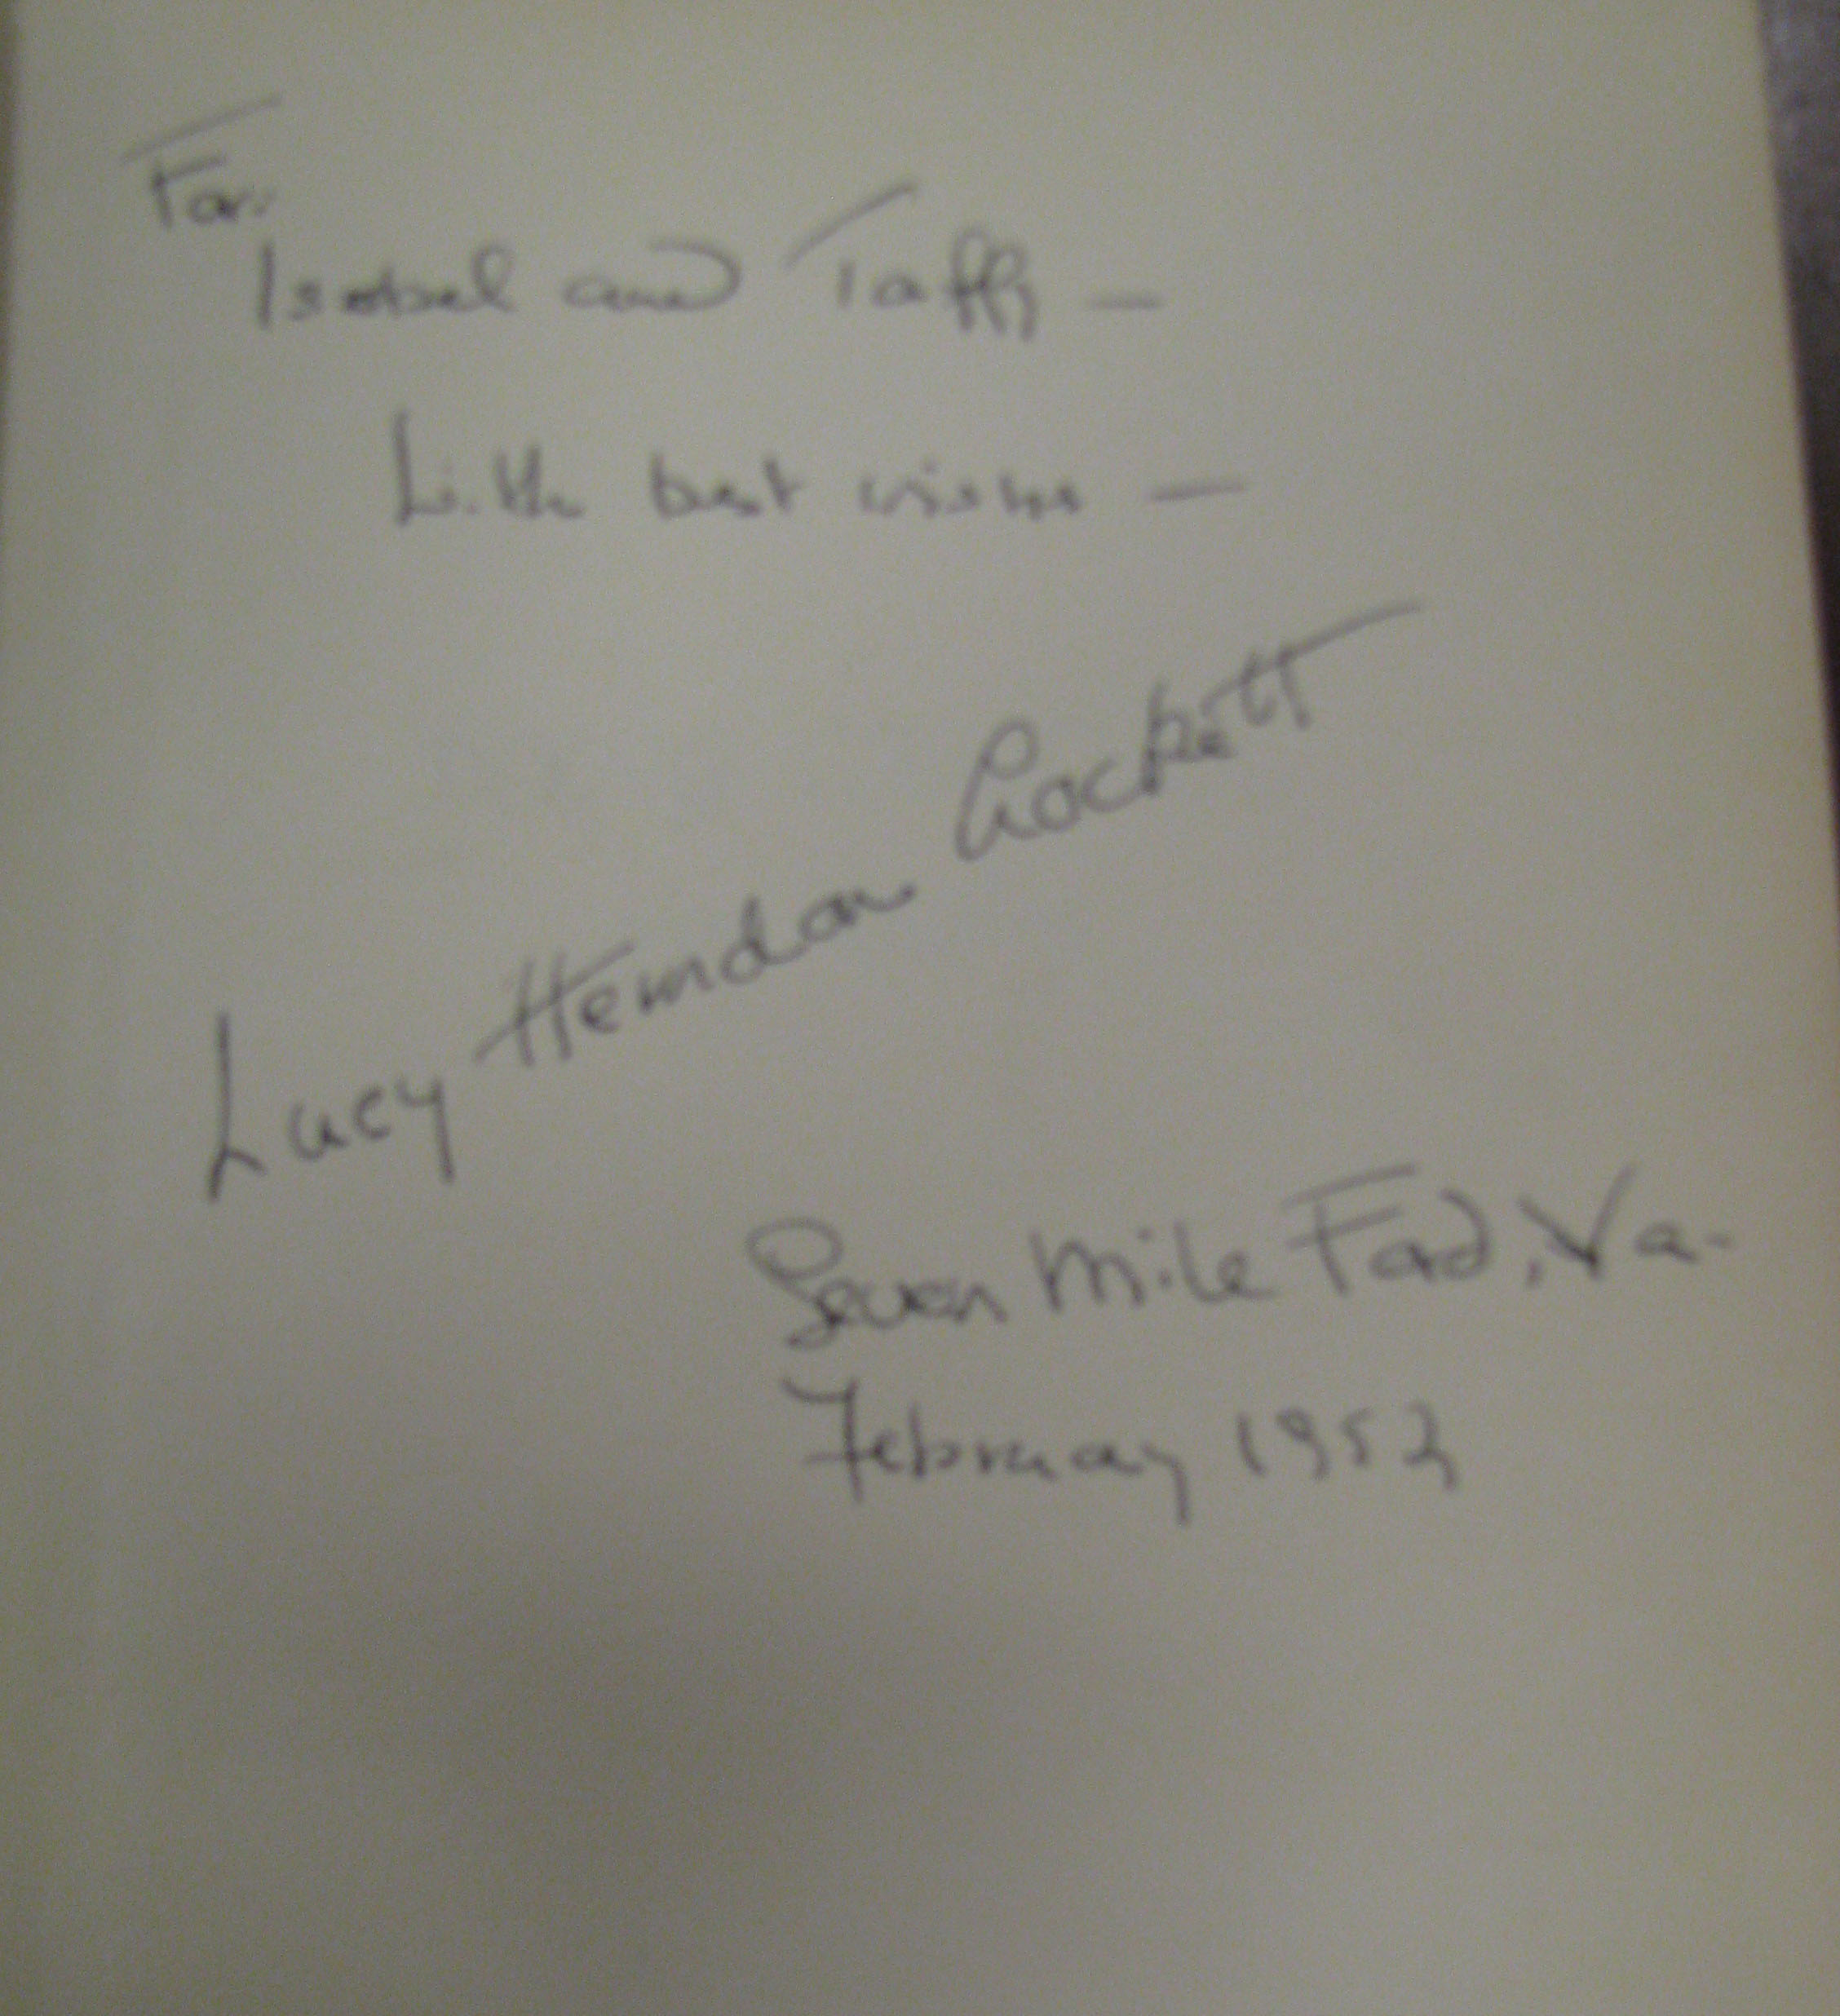 For:
Isabel and Taffy —
With best wishes —
Lucy Herndon Crockett
Seven Mile Ford, Va.
February 1952